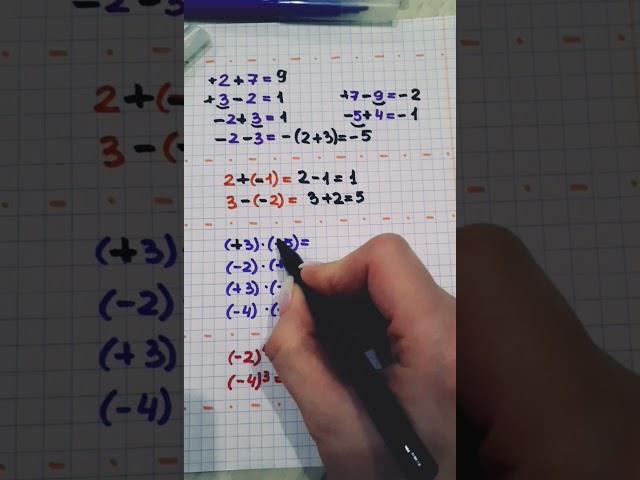 +2+7=9
+3-2=1
-2+3=1
-2-3=-(2+3)=-5
+7-9=-2
-5+4=-1
2+(-1)=2-1=1
3-(-2)=3+2=5
(+3)·(+5)=
(-2)·(
(+3)·(-
(-4)·(
(-2)
(-4)³=